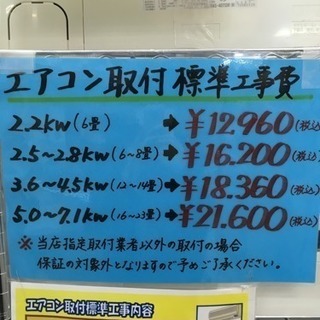 エアコン取付標準工事費
2.2kw(6畳)→¥12.960(税込)
2.5~2.8kw(6~8畳)→¥16.200(税込)
3.6~4.5kw(12~14畳)→¥18.360(税込)
5.0~7.1kw(16~23畳)→¥21.600(税込)
※当店指定取付業者以外の取付の場合
保証の対象外となりますので予めご了承ください。
エアコン取付標準工事内容